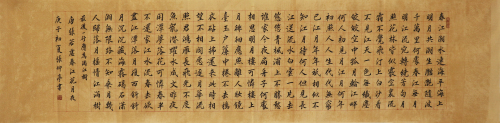 春江潮水連海平海上
明月共潮生灩灩隨波
千萬里何處春江無月
明江流宛轉繞芳甸月
照花林皆似霰空裏流
霜不覺飛汀上白沙看
不見江天一色無纖塵
皎皎空中孤月輪江畔
何人初見月江月何年
初照人人生代代無窮
已江月年年望相似不
知江月待何人但見長
江送流水白雲一片去
悠悠青楓浦上不勝愁
誰家今夜扁舟子何處
相思明月樓可憐樓上
月裴回應照離人妝鏡
臺玉戶簾中卷不去搗
衣砧上拂還來此時相
望不相聞願逐月華流
照君鴻雁長飛光不度
魚龍潛躍水成文昨夜
閑潭夢落花可憐春半
不還家江水流春去欲
盡江潭落月復西斜斜
月沉沉藏海霧碣石瀟
湘無限路不知乘月幾
人歸落月搖情滿江樹
唐張若虛春江花月夜
庚子初夏張仲亭書